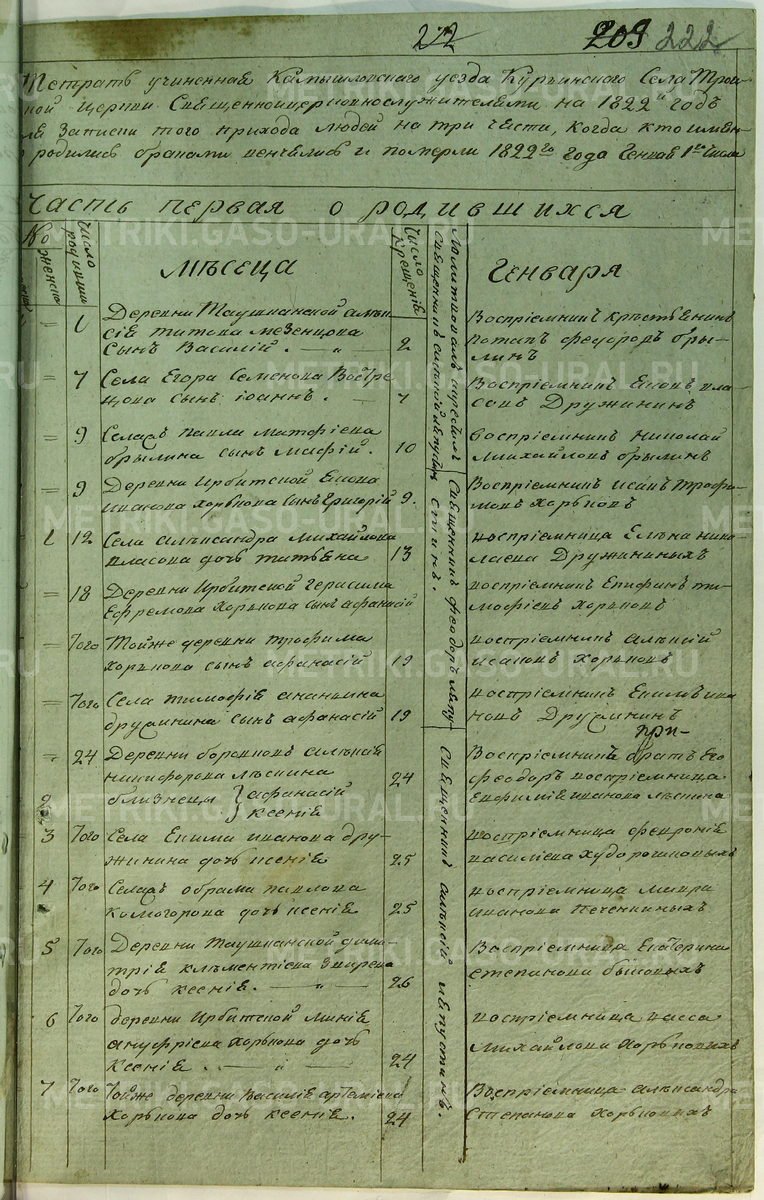 222
209 222
Тетрать учиненная Камышловскаго уезда Курьинскаго Села Трои
ной церкви Священноцерковнослужителями на 1822й годъ
записки того прихода людей на три части, когда кто имян
родились браками венчелись и померли 1822го года Генваря 1го числа
Часть первая о родившихся
№
женска
Число рождения
Мѣсеца
Число Крещенїе
Генваря
= 1 Деревни Таушканской алѣк
сѣе титова мезенцова
Сынъ Василїй. 2
Воспрїемникъ крѣстьЕнинъ
потапъ феодоровъ бры-
линъ
= 7 Села Егора Семенова Востре
цова сынъ іоаннъ. 7
Воспрїемникъ Якокъ вла-
совъ Дружининъ
= 9 Селахъ павла матфѣева
брылина сынъ мафїй. 10
воспрїемникъ николай
михайловъ брылинъ
= 9 Деревни Ирбитской
иванова хорькова сынъ григорїй 9.
Воспрїемникъ исакъ трофи-
мовъ хорьковъ
1 12 Села алѣксандра михайлова
власова дочь татьѣна 13
воспрїемница Елѣна нико
лаева Дружининыхъ
= 18 Деревни Ирбитской герасима
Ефремова хорькова сынъ афанасїй
воспрїемникъ Епифанъ ти-
мофѣевъ хорьковъ
= того Тойже деревни трофима
хорькова сынъ афанасїй 19
воспрїемникъ алѣксїй
исаковъ хорьковъ
= того Села тимофѣе ананьина
дружинина сынъ афанасїй 19
воспрїемникъ Екимъ ива
новъ Дружининъ
= 24 Деревни боровковъ алѣксѣе
никифорова лѣскина
2 близнецы } афанасїй
ксенїе 24
при-
Воспрїемникъ братъ Его
феодоръ воспрїемница
Евфимїе иванова лѣскина
3 того Села Екима иванова дру-
жинина дочь ксенїе 25
воспрїемница феврониe
василїева худорошковыхъ
4 того Селахъ абрама павлова
комогорова дочь ксенїе 25
воспрїемница мавра
иванова печенкиныхъ
5 того Деревни Таушканской дими-
трїе клѣментїева
дочь ксенїе. 26
Воспрїемница Екатерина
степанова быковыхъ
6 того деревни Ирбитской
ануфрїева хорькова дочь
Ксенїе. 24
воспрїемница васса
михайлова хорьковыхъ
7 того Тойже деревни Василїе артемїева
хорькова дочь ксенїе. 24
Воспрїемница алѣксандра
Степанова хорьковыхъ
Священникъ феодоръ лѣпу
стинъ.
Священникъ алѣксїй лѣпустинъ.
METRIKI.GASO-URAL.RU